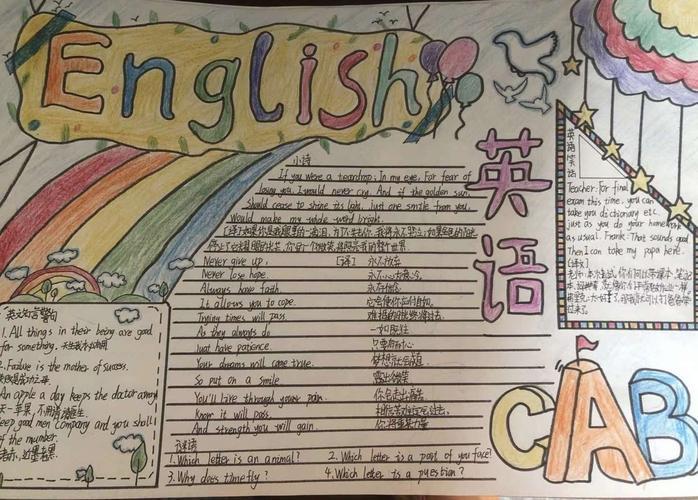 English
英语
小诗
If you were a teardrop; In my eye, For fear of
losing you, I would never cry. And if the golden sun,
Should cease to shine its light, Just one smile from you,
Would make my whole world bright.
Never give up,
永不放弃
Never lose hope.
永不心灰意冷
Always have faith,
永存信念
It allows you to cope.
Trying times will pass,
As they always do
一如既往
Just have patience,
只要有耐心
Your dreams will come true.
So put on a smile
露出微笑
You'll live through your pain.
Know it will pass,
And strength you will gain.
谜语
1. Which letter is an animal? 2. Which letter is a part of you face?
3. Why does time fly? 4. Which letter is a question?
1. All things in their being are good
for something. 天生我才必有用
2. Failure is the mother of success.
失败是成功之母
An apple a day keeps the doctor away
一天一苹果，不用请医生
keep good men company and you shall
of the number.
近朱者赤，近墨者黑
英语笑话
Teacher: For final
exam this time, you can
take you dictionary etc.
just as you do your homework
as usual. Frank: That sounds good
Then I can take my papa here.
CAB